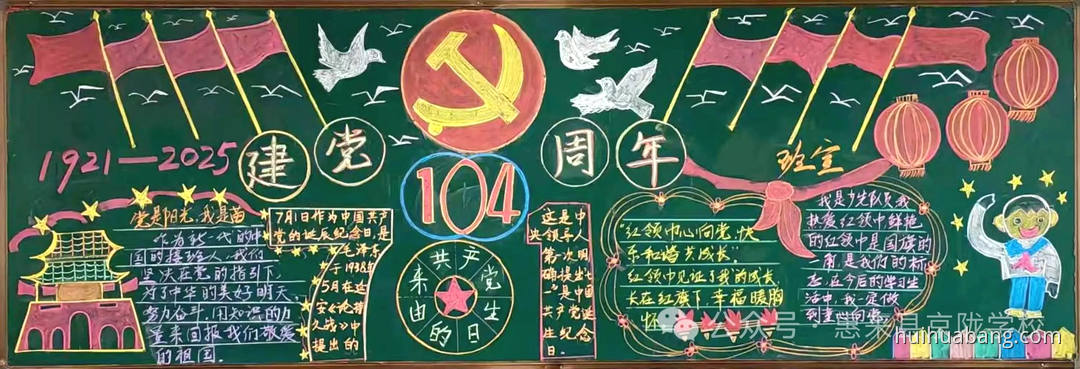 1921—2025
建党
104
周年
班宣
党是阳光,我是苗
作为新一代的中
国的接班人,我们
坚决在党的指引下,
为了中华的美好明天,
努力奋斗,用知识的力
量来回报我们敬爱
的祖国。
7月1日作为中国共产
党的诞辰纪念日,是
毛泽东
于1938年
5月在延
安《论持
久战》中
提出的
共产党生日的由来
这是中
央领导人
第一次明
确提出七
一是中国
共产党诞
生纪念
日。
"红领巾心向党,快
乐和谐共成长"
红领巾见证了我的成长,
长在红旗下,幸福暖胸
怀
我是少先队员我
热爱红领巾鲜艳
的红领巾是国旗的
一角,是我们的标
志,在今后的学习生
活中,我一定做
到童心向党
公众号·惠来县高陇学校
huihuabang.com